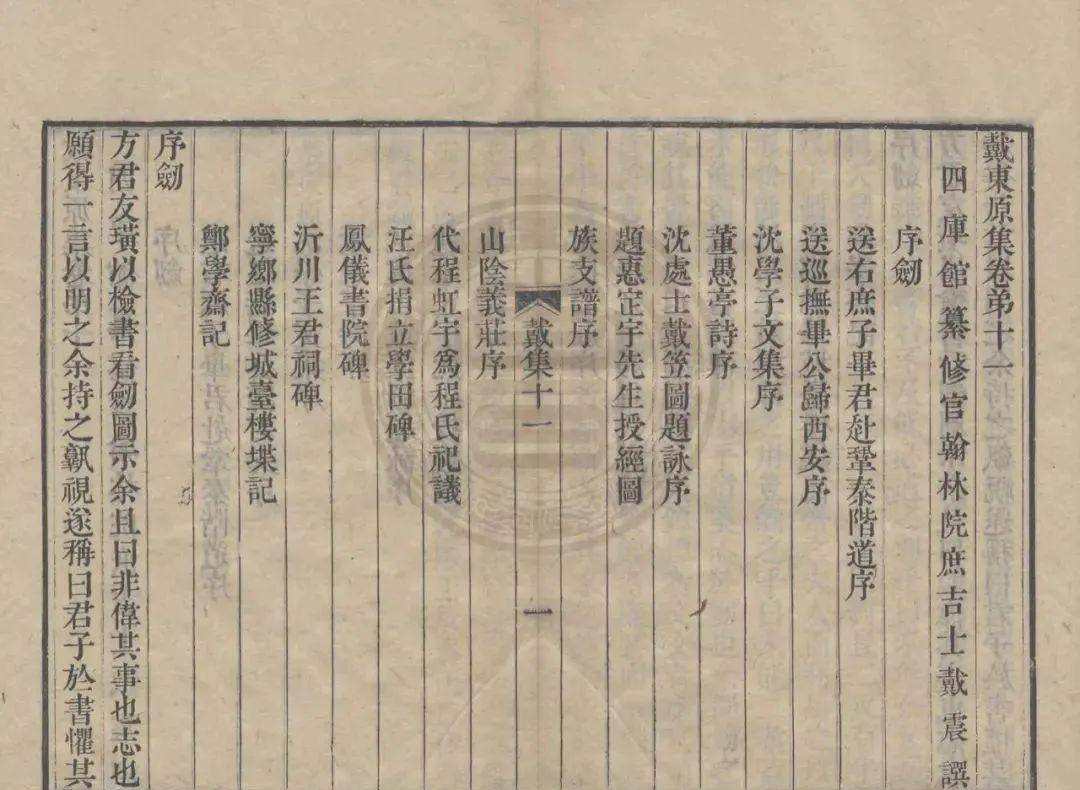 戴東原集卷弟十一
四庫館纂修官翰林院庶吉士戴震譔
序劒
送右庶子畢君赴鞏秦階道序
送巡撫畢公歸西安序
沈學子文集序
董愚亭詩序
沈處士戴笠圖題詠序
題惠定宇先生授經圖
族支譜序
戴集十一
一
山陰義莊序
代程虹宇爲程氏祀議
汪氏捐立學田碑
鳳儀書院碑
沂川王君祠碑
寧鄉縣修城臺樓堞記
鄭學齋記
序劒
方君友璜以檢書看劒圖示余且曰非偉其事也志也
願得一言以明之余持之孰視遂稱曰君子於書懼其